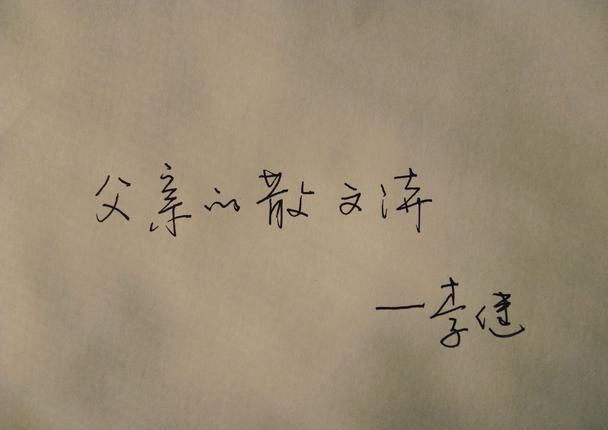 父亲的散文诗
—李健